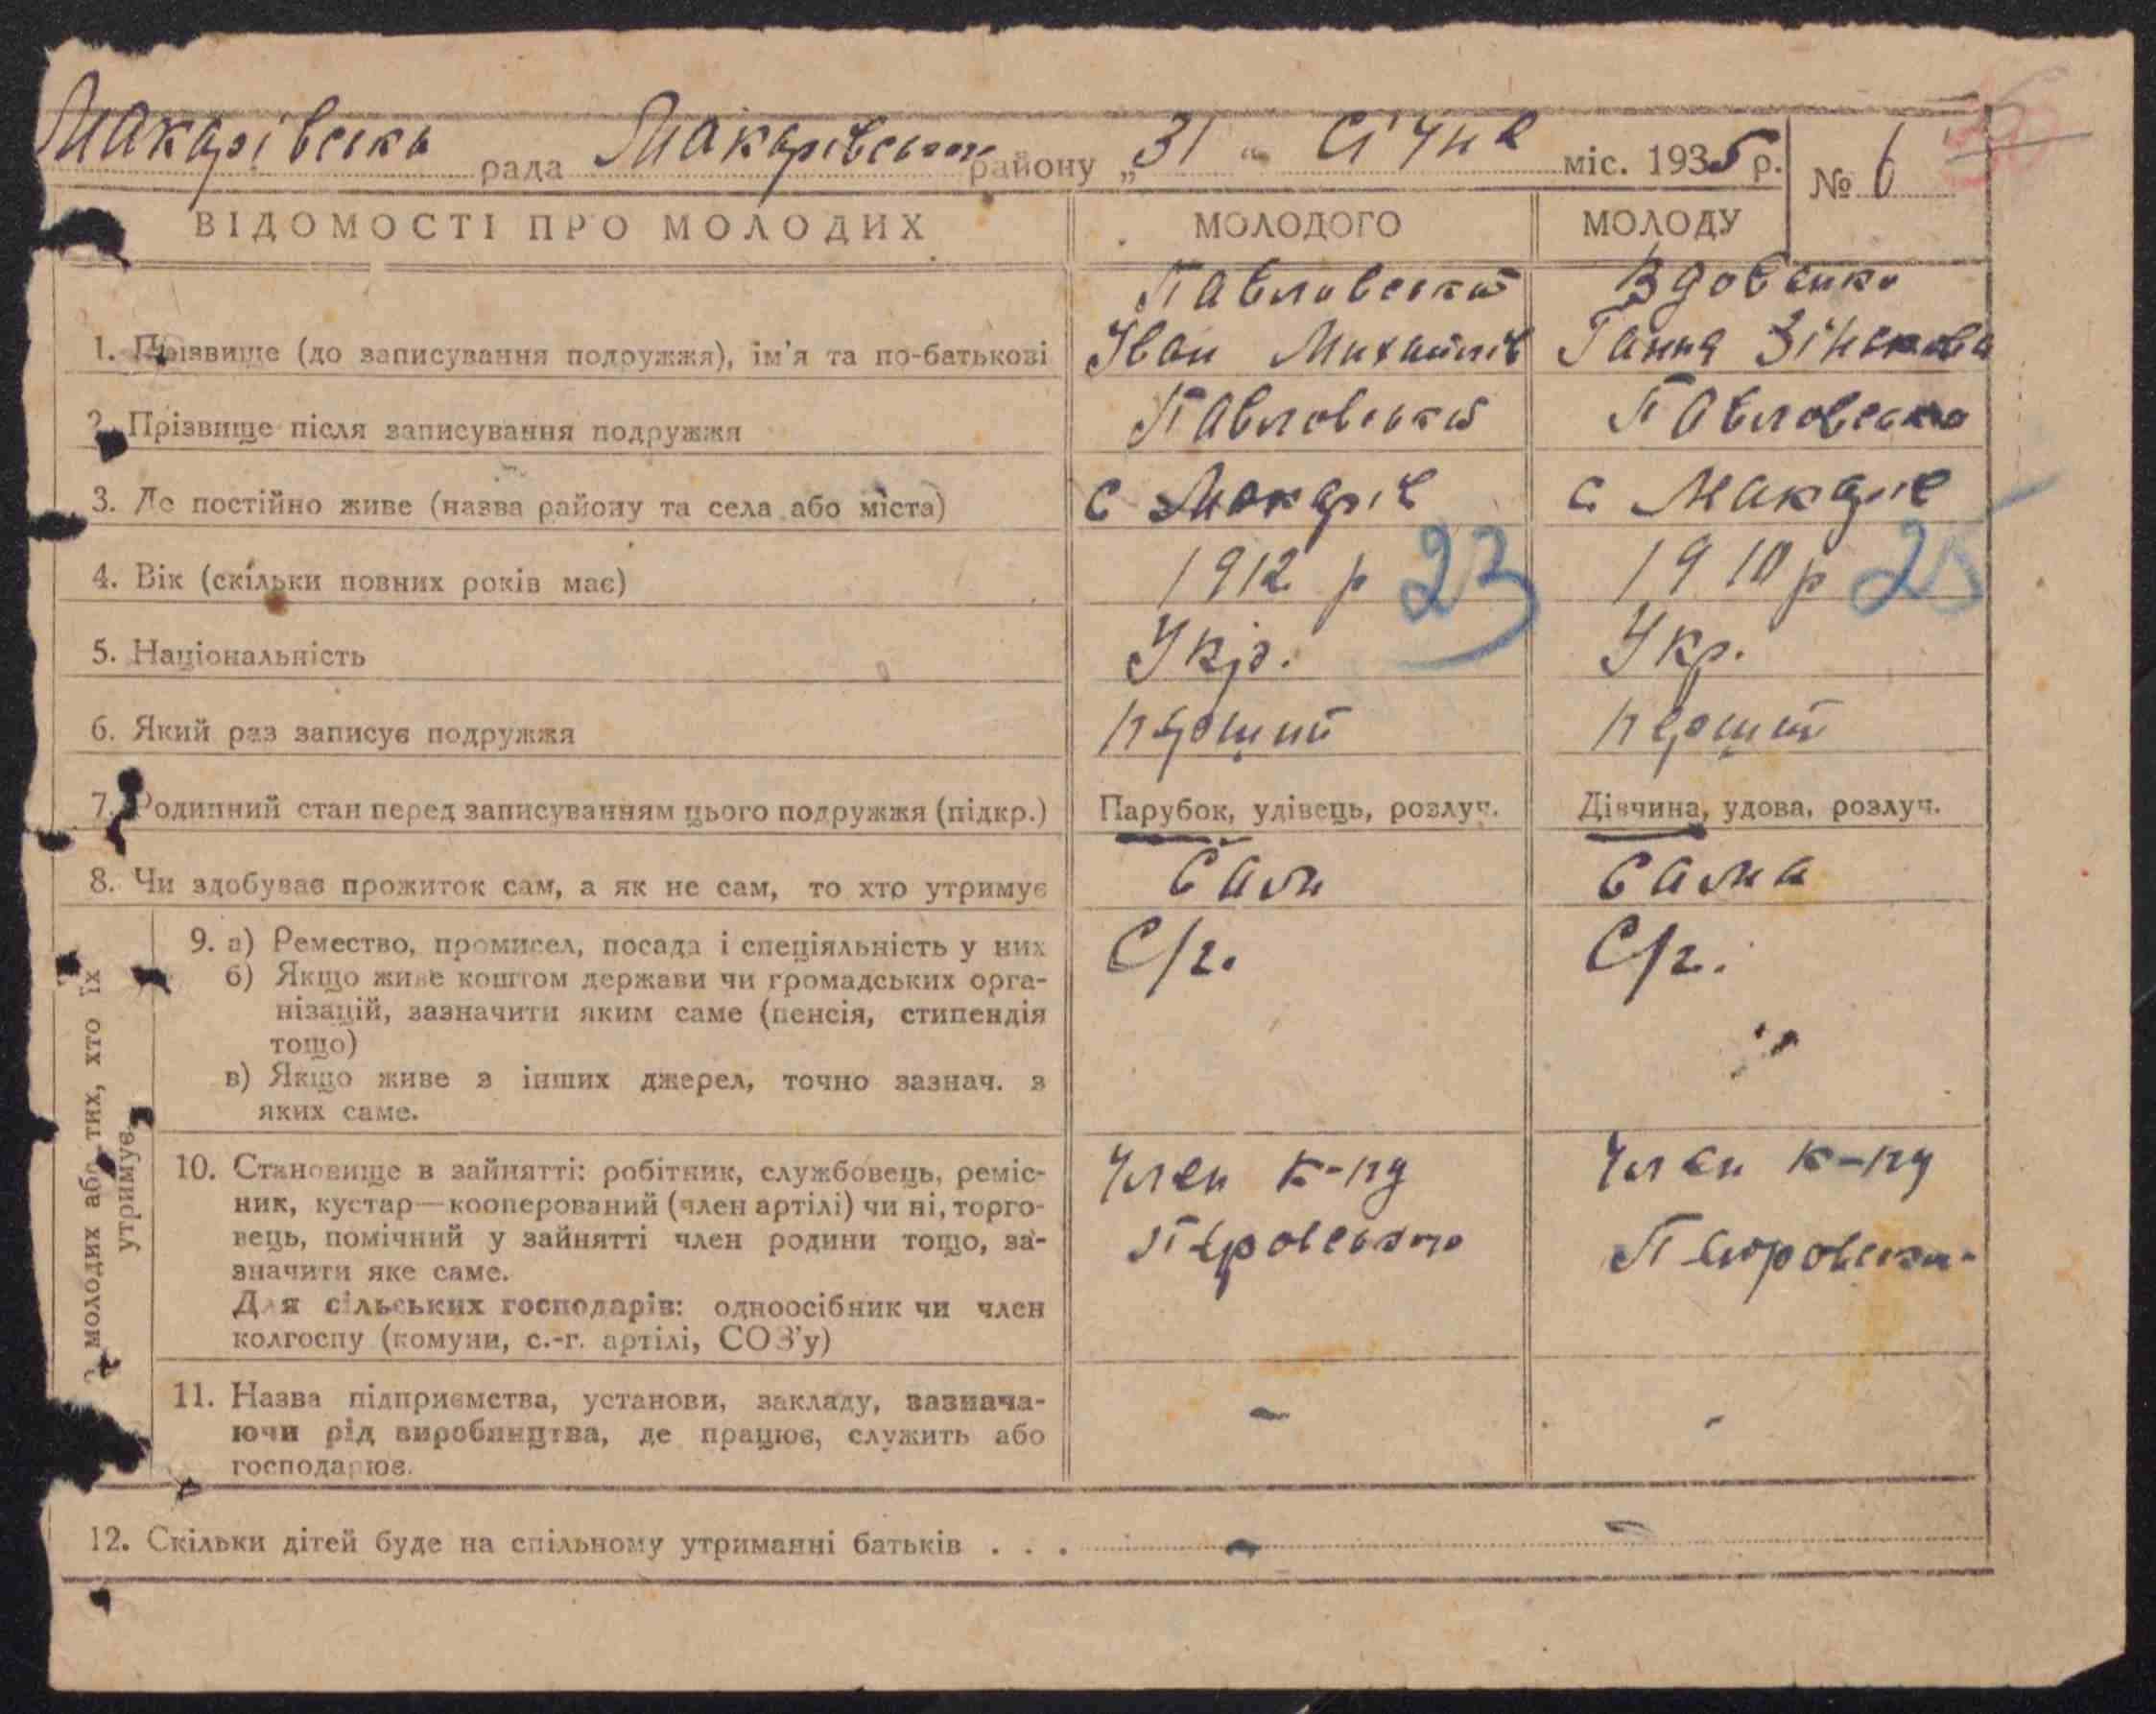 Макарівська рада Макарівськ району „31“ Січня міс. 1935 р. № 6
ВІДОМОСТІ ПРО МОЛОДИХ МОЛОДОГО МОЛОДУ
Павловський Вдовенко
1. Прізвище (до записування подружжя), ім'я та по-батькові Іван Михайлів Ганна Зінькова
2. Прізвище після записування подружжя Павловський Павловська
3. Де постійно живе (назва району та села або міста) с Макарів с Макарів
4. Вік (скільки повних років має) 1912 р 23 1910 р 25
5. Національність Укр. Укр.
6. Який раз записує подружжя перший перший
7. Родинний стан перед записуванням цього подружжя (підкр.) Парубок, удівець, розлуч. Дівчина, удова, розлуч.
8. Чи здобуває прожиток сам, а як не сам, то хто утримує Сам Сама
З молодих або тих, хто їх
утримує
9. а) Ремество, промисел, посада і спеціяльність у них С/г. С/г.
б) Якщо живе коштом держави чи громадських орга-
нізацій, зазначити яким саме (пенсія, стипендія
тощо)
в) Якщо живе з інших джерел, точно зазнач. з
яких саме.
10. Становище в зайнятті: робітник, службовець, реміс- Член к-пу Член к-пу
ник, кустар—кооперований (член артілі) чи ні, торго-
вець, помічний у зайнятті член родини тощо, за-
значити яке саме.
Для сільських господарів: одноосібник чи член
колгоспу (комуни, с.-г. артілі, СОЗ'у)
11. Назва підприємства, установи, закладу, зазнача- - -
ючи рід виробництва, де працює, служить або
господарює.
12. Скільки дітей буде на спільному утриманні батьків . . . - -